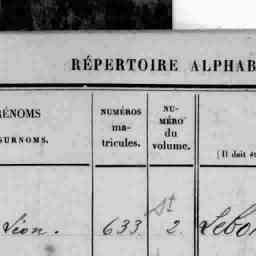 RÉPERTOIRE ALPHAB
RÉNOMS
SURNOMS.
NUMÉROS
ma-
tricules.
NU-
MÉRO
du
volume.
(Il doit êt
St
Léon. 633 2 Lebo